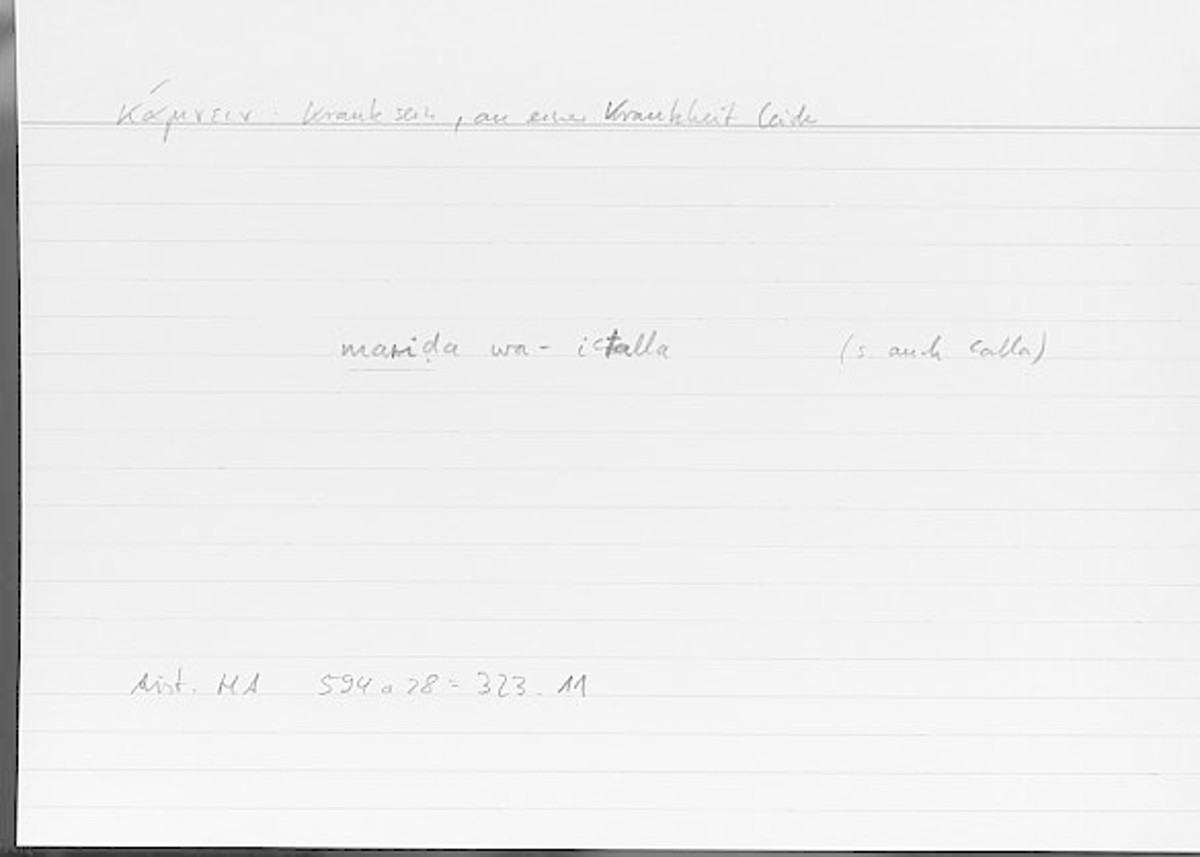 κάμνειν : krank sein, an einer Krankheit leiden
mariḍa wa- iʿtalla (s. auch ʿalla)
Arist. HA 594 a 28 = 323. 11